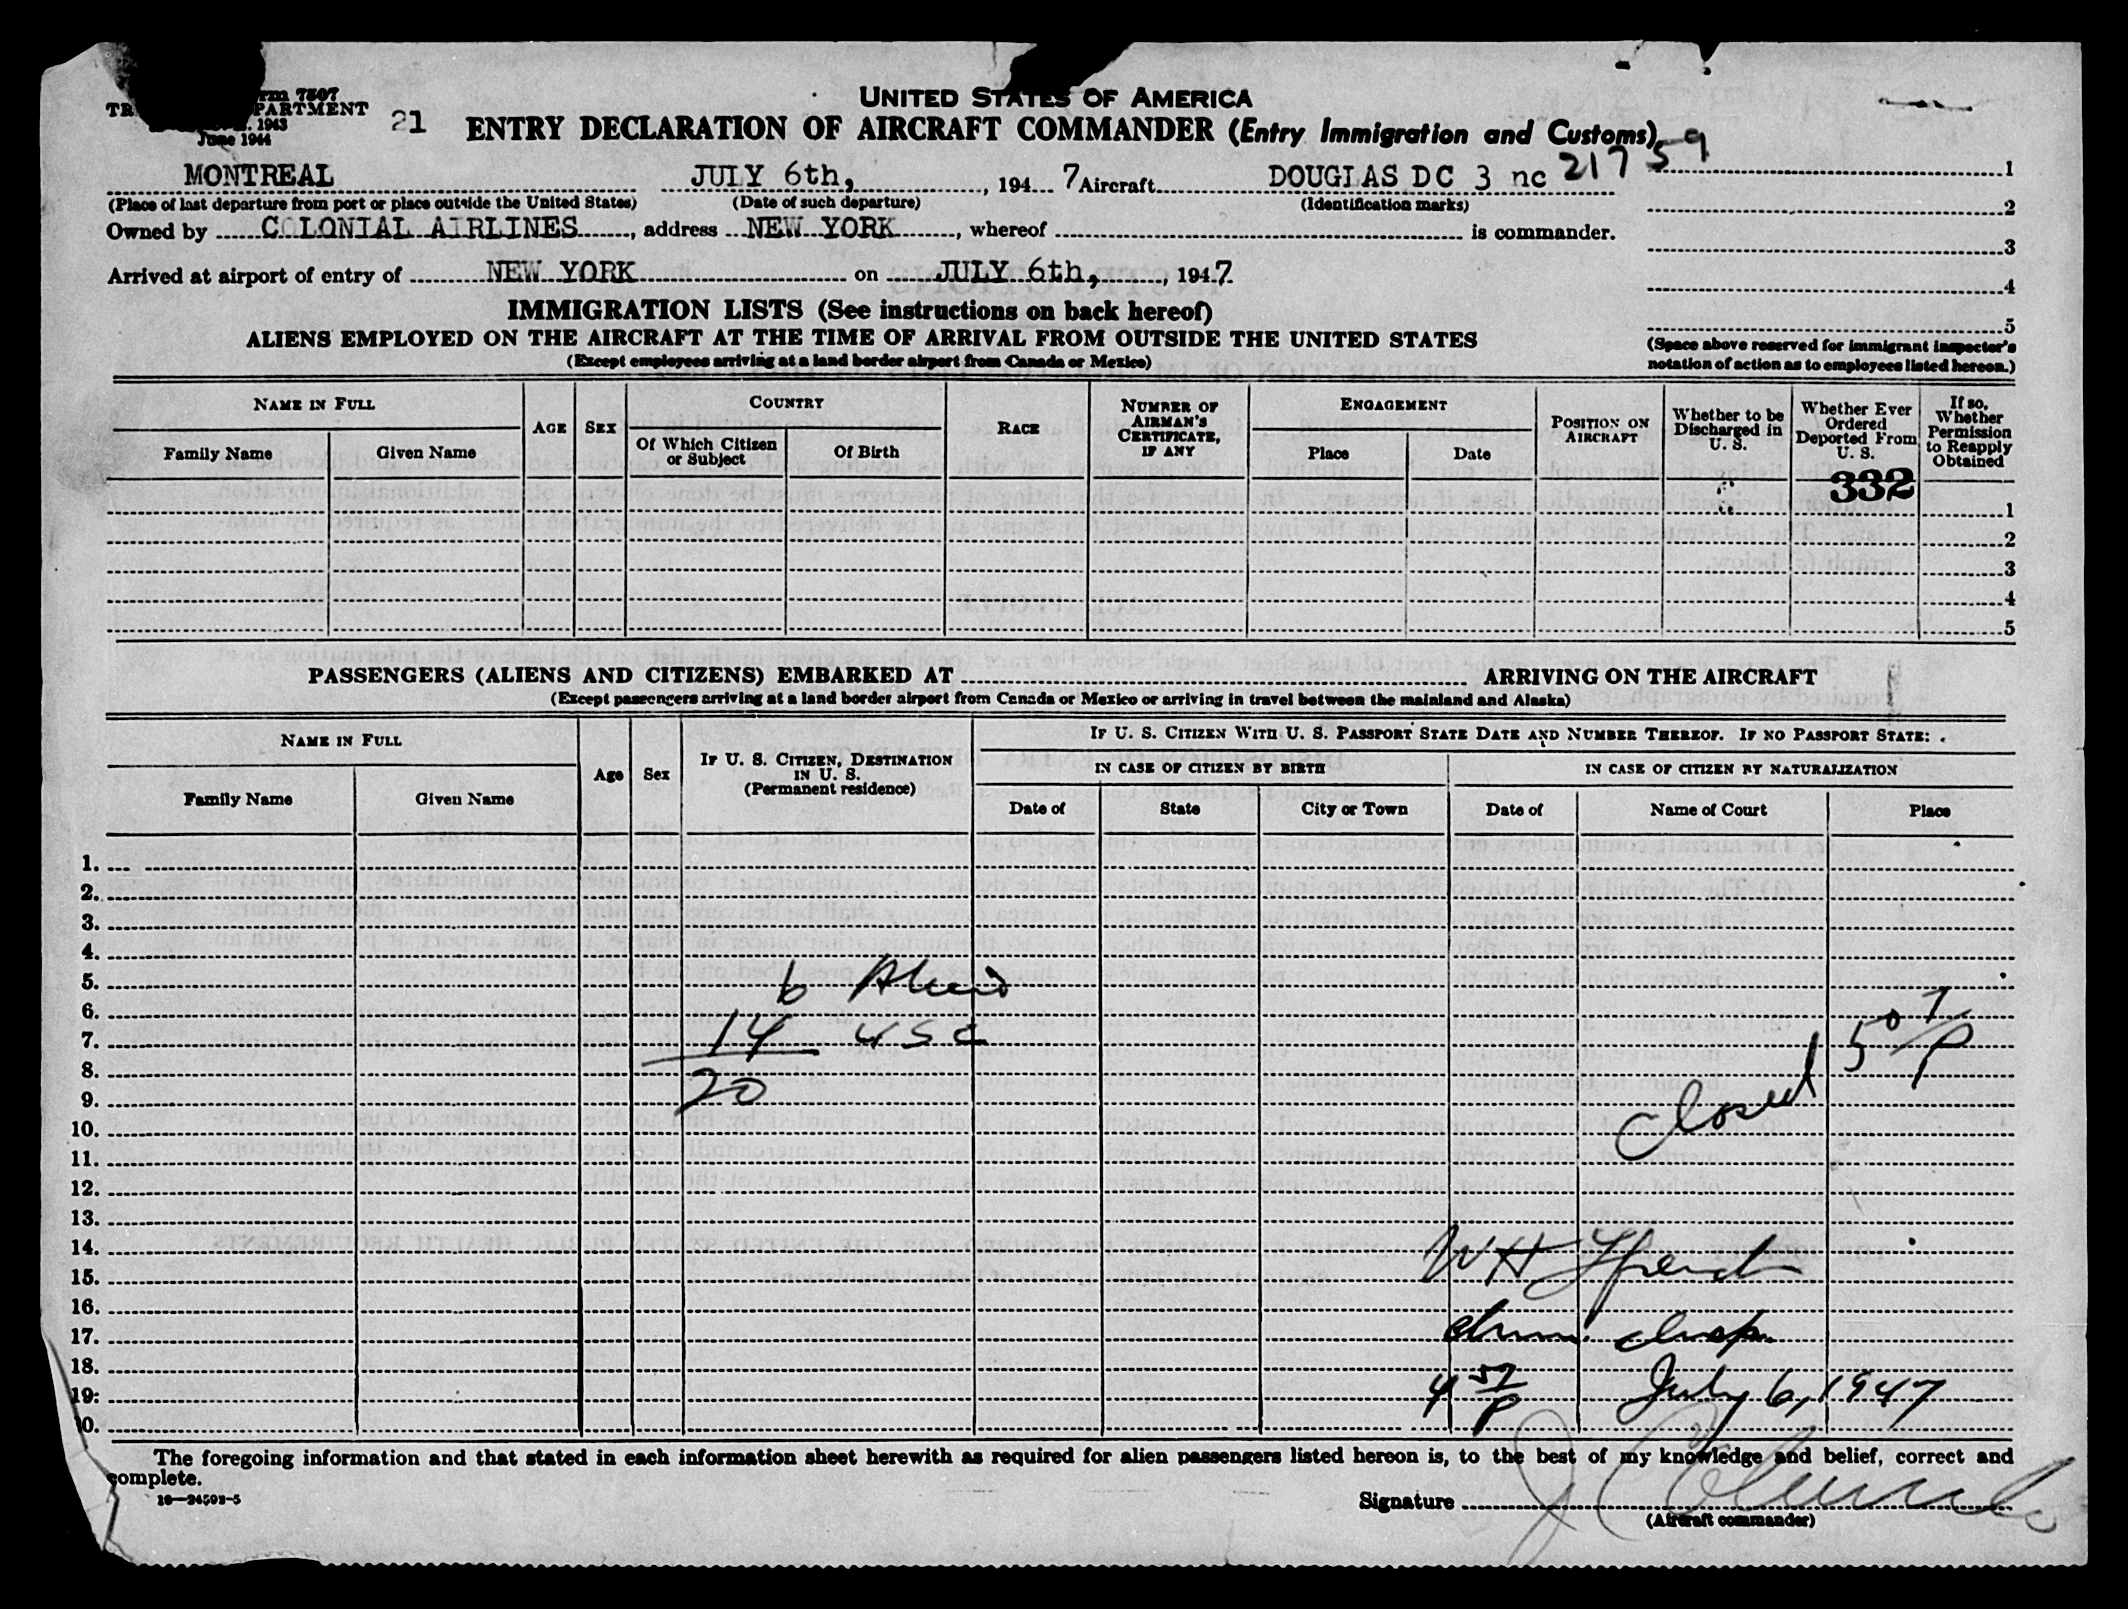 rm 7507
TR PARTMENT
1943
June 1944
21
UNITED STATES OF AMERICA
ENTRY DECLARATION OF AIRCRAFT COMMANDER (Entry Immigration and Customs)
MONTREAL JULY 6th, , 194 7 Aircraft DOUGLAS DC 3 nc 21759
(Place of last departure from port or place outside the United States) (Date of such departure) (Identification marks)
Owned by COLONIAL AIRLINES, address NEW YORK, whereof is commander.
Arrived at airport of entry of NEW YORK on JULY 6th, , 1947.
1
2
3
4
5
(Space above reserved for immigrant inspector's
notation of action as to employees listed hereon.)
IMMIGRATION LISTS (See instructions on back hereof)
ALIENS EMPLOYED ON THE AIRCRAFT AT THE TIME OF ARRIVAL FROM OUTSIDE THE UNITED STATES
(Except employees arriving at a land border airport from Canada or Mexico)
NAME IN FULL
Family Name
Given Name
AGE
SEX
COUNTRY
Of Which Citizen
or Subject
Of Birth
RACE
NUMBER OF
AIRMAN'S
CERTIFICATE,
IF ANY
ENGAGEMENT
Place
Date
POSITION ON
AIRCRAFT
Whether to be
Discharged in
U. S.
Whether Ever
Ordered
Deported From
U. S.
If so,
Whether
Permission
to Reapply
Obtained
332
1
2
3
4
5
PASSENGERS (ALIENS AND CITIZENS) EMBARKED AT ARRIVING ON THE AIRCRAFT
(Except passengers arriving at a land border airport from Canada or Mexico or arriving in travel between the mainland and Alaska)
NAME IN FULL
Family Name
Given Name
Age
Sex
IF U. S. CITIZEN, DESTINATION
IN U. S.
(Permanent residence)
IF U. S. CITIZEN WITH U. S. PASSPORT STATE DATE AND NUMBER THEREOF. IF NO PASSPORT STATE:
IN CASE OF CITIZEN BY BIRTH
Date of
State
City or Town
IN CASE OF CITIZEN BY NATURALIZATION
Date of
Name of Court
Place
1.
2.
3.
4.
5.
6.
7.
8.
9.
10.
11.
12.
13.
14.
15.
16.
17.
18.
19.
0.
6 Aliens
14 USC
20
Closed 5 07 P
W H
Imm. Insp.
4 57 P July 6, 1947
The foregoing information and that stated in each information sheet herewith as required for alien passengers listed hereon is, to the best of my knowledge and belief, correct and
complete.
16—24592-5
Signature
(Aircraft commander)